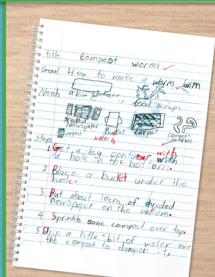 title compost worms
Goal How to make a worm farm
Needs a big container food scraps
newspaper bucket carpet compost worms
water
Steps
1 Get a big container with with
a hole in the bottom.
2 Place a buckit under the
hole.
3 Put about 10cm of shredded
newspaper on the bottom.
4 Sprinkle some compost over top.
5 Drip a little bit of water over
the compost to dampen it.